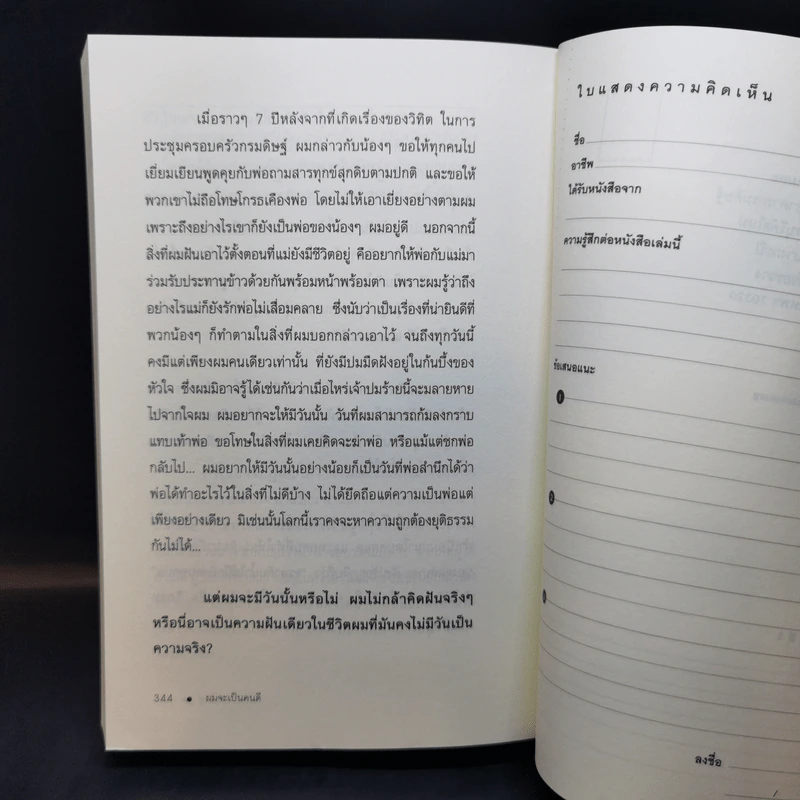 เมื่อราวๆ 7 ปีหลังจากที่เกิดเรื่องของวิทิต ในการ
ประชุมครอบครัวกรมดิษฐ์ ผมกล่าวกับน้องๆ ขอให้ทุกคนไป
เยี่ยมเยียนพูดคุยกับพ่อถามสารทุกข์สุกดิบตามปกติ และขอให้
พวกเขาไม่ถือโทษโกรธเคืองพ่อ โดยไม่ให้เอาเยี่ยงอย่างตามผม
เพราะถึงอย่างไรเขาก็ยังเป็นพ่อของน้องๆ ผมอยู่ดี นอกจากนี้
สิ่งที่ผมฝันเอาไว้ตั้งตอนที่แม่ยังมีชีวิตอยู่ คืออยากให้พ่อกับแม่มา
ร่วมรับประทานข้าวด้วยกันพร้อมหน้าพร้อมตา เพราะผมรู้ว่าถึง
อย่างไรแม่ก็ยังรักพ่อไม่เสื่อมคลาย ซึ่งนับว่าเป็นเรื่องที่น่ายินดีที่
พวกน้องๆ ก็ทำตามในสิ่งที่ผมบอกกล่าวเอาไว้ จนถึงทุกวันนี้
คงมีแต่เพียงผมคนเดียวเท่านั้น ที่ยังมีปมมืดฝังอยู่ในก้นบึ้งของ
หัวใจ ซึ่งผมมิอาจรู้ได้เช่นกันว่าเมื่อไหร่เจ้าปมร้ายนี้จะมลายหาย
ไปจากใจผม ผมอยากจะให้มีวันนั้น วันที่ผมสามารถก้มลงกราบ
แทบเท้าพ่อ ขอโทษในสิ่งที่ผมเคยคิดจะฆ่าพ่อ หรือแม้แต่ชกพ่อ
กลับไป... ผมอยากให้มีวันนั้นอย่างน้อยก็เป็นวันที่พ่อสำนึกได้ว่า
พ่อได้ทำอะไรไว้ในสิ่งที่ไม่ดีบ้าง ไม่ได้ยึดถือแต่ความเป็นพ่อแต่
เพียงอย่างเดียว มิเช่นนั้นโลกนี้เราคงจะหาความถูกต้องยุติธรรม
กันไม่ได้...
แต่ผมจะมีวันนั้นหรือไม่ ผมไม่กล้าคิดฝันจริงๆ
หรือนี่อาจเป็นความฝันเดียวในชีวิตผมที่มันคงไม่มีวันเป็น
ความจริง?
344 • ผมจะเป็นคนดี
ใบแสดงความคิดเห็น
ชื่อ
อาชีพ
ได้รับหนังสือจาก
ความรู้สึกต่อหนังสือเล่มนี้
ข้อเสนอแนะ
1
2
ลงชื่อ